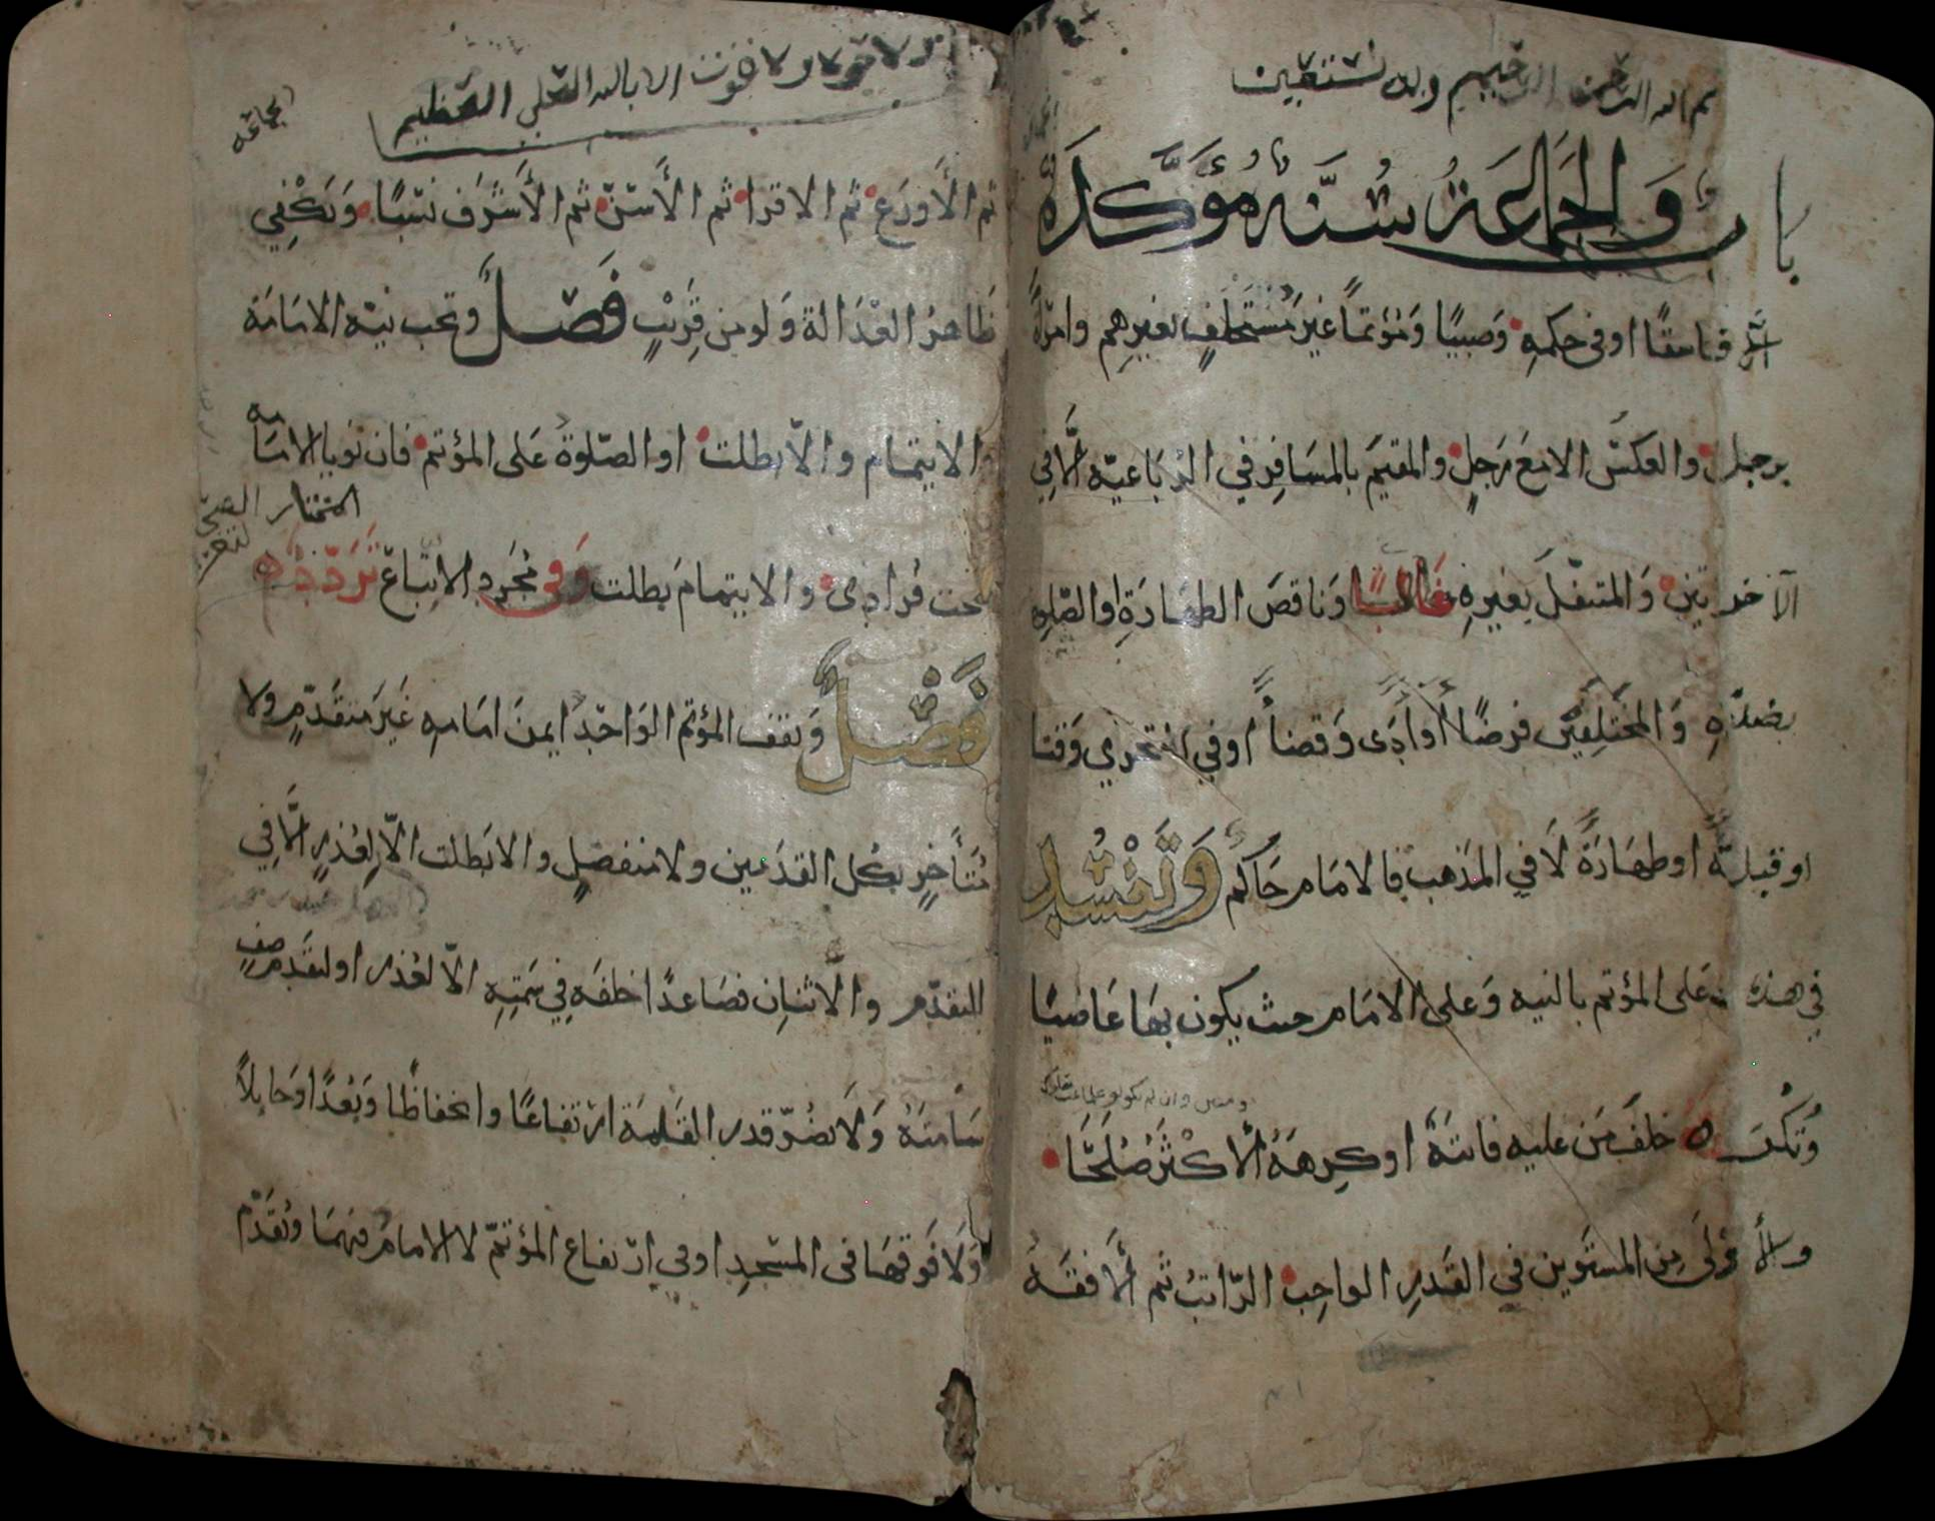 بسم الله الرحمن الرحيم وبه نستعين
باب والجماعة سُنّة مؤكّدة
إلّا فاسقًا او في حكمه وَصبيًا وَمؤتمًا غيرَ مُستخلفٍ بغيرهم وامرأةً
برجل والعكسُ الا مَعَ رَجلٍ والمقيمَ بالمسَافِر في الرُبَاعيّه الّا في
الآخرتين وَالمتنفّلَ بغيرهِ غَالبًا وَناقصَ الطهَارَةِ او الصّلوةِ
بضدّهِ وَالمختَلِفَيْن فرضًا أو أدَآءً وَقضاءً او في التحري وَقتا
او قبلةً او طهَارَةً لَا في المذهب فالامَام حَاكم وَتفسُد
في هذه عَلى المؤتم بالنيه وَعلى الامَام حيث يكون بهَا عَاصيًا
وَتكْرَه خلفَ مَن عليه فائتةٌ او كرِهَهُ الأكْثَرُ صُلَحَآ
والأَوْلَى مِن المستَوين في القَدرِ الواجِب الرّاتبُ ثم الأَفقَهُ
لا حول ولا قوت الا بالله العلي العظيم
الجماعه
ثم الأَورَع ثم الاقرا ثم الأَسَنّ ثم الأَشْرَف نسَبًا وَيَكْفِي
ظَاهرُ العَدَالة وَلو من قَرِيْبٍ فَصْلٌ وتجب نيّة الامَامَة
الايتمام والّا بطلت او الصّلوةُ عَلى المؤتم فان نويا الامَامَه
المختار الصحه
صحت فُرادى والايتمامَ بطلت وَفي مُجَرد الاتّباع تَرَدّدٌ
فَصْلٌ وَيقف المؤتم الوَاحدُ ايمنَ امَامِهِ غَيرَ متقدّمٍ ولا
مُتَأَخرٍ بكل القدَمين ولا منفصلٍ والا بَطلت الّا لِعُذرٍ الّا في
التقدّم والَاثنان فصَاعدًا خلفَه في سَمتِهِ الّا لعُذر او لتقَدم صَفٍ
سَامتَهُ وَلَا يَضُرّ قدر القَامَة ارتفَاعًا وانخفاضًا وَبُعْدًا وَحايلًا
وَلَا فَوقهَا في المسَجدِ او في ارتفاع المؤتمّ لا الامَامُ فيهمَا وَيقَدّم